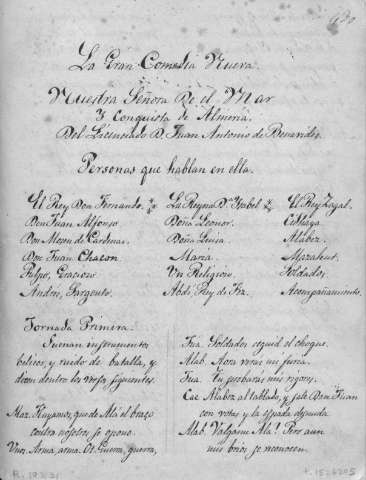 La Gran Comedia Nueva.
Nuestra Señora De el Mar
Y Conquista de Almeria.
Del Licenciado D. Juan Antonio de Benavides.
Personas que hablan en ella.
El Rey Don Fernando.
Don Juan Alfonso
Don Mosen de Cardenas.
Don Juan Chacon
Pulpo, Gracioso
Andres, Sargento.
La Reyna D.ª Ysabel
Doña Leonor.
Doña Luisa.
Maria.
Un Religioso.
Abdi, Rey de Fez.
El Rey Zagal.
Alabez.
Soldados.
Acompañamiento.
Jornada Primera.
Suenan instrumentos
belicos, y ruido de batalla, y
dicen dentro los versos siguientes.
Huyamos, que de Ala el brazo
contra nosotros se opone.
Unos. Arma, arma. Ot. Guerra, guerra,
Jua. Soldados seguid el choque.
Alab. Aora veras mi furia.
Jua. Tu probaras mis rigores.
Cae Alabez al tablado, y sale Don Juan
con votas y la espada desnuda.
Alab. Valgame Ala! Pero aun
mis brios se reconocen.